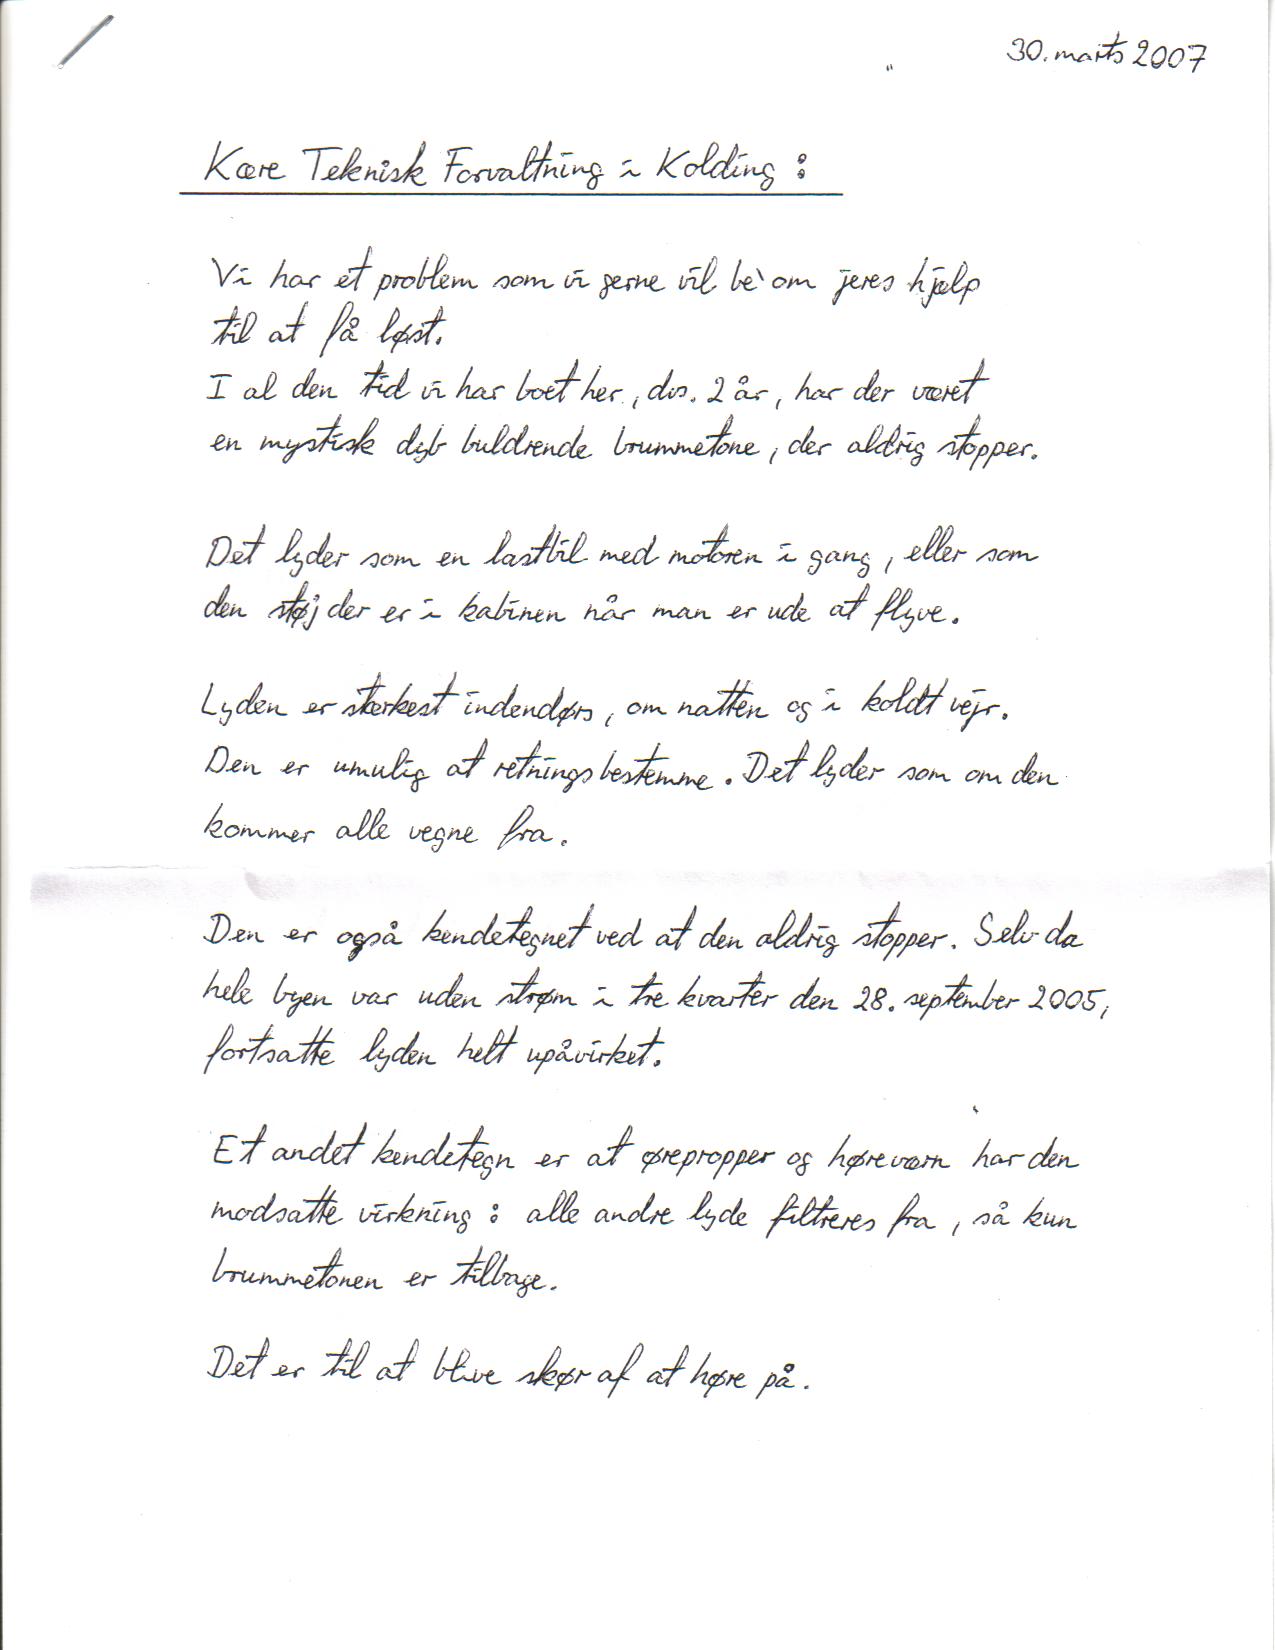 30. marts 2007
Kære Teknisk Forvaltning i Kolding :
Vi har et problem som vi gerne vil be' om jeres hjælp
til at få løst.
I al den tid vi har boet her, dvs. 2 år, har der været
en mystisk dyb buldrende brummetone, der aldrig stopper.
Det lyder som en lastbil med motoren i gang, eller som
den støj der er i kabinen når man er ude at flyve.
Lyden er stærkest indendørs, om natten og i koldt vejr.
Den er umulig at retningsbestemme. Det lyder som om den
kommer alle vegne fra.
Den er også kendetegnet ved at den aldrig stopper. Selv da
hele byen var uden strøm i tre kvarter den 28. september 2005,
fortsatte lyden helt upåvirket.
Et andet kendetegn er at ørepropper og høreværn har den
modsatte virkning : alle andre lyde filtreres fra, så kun
brummetonen er tilbage.
Det er til at blive skør af at høre på.